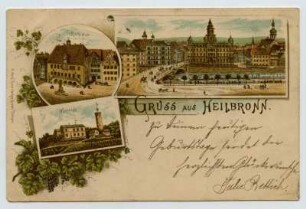 GRUSS AUS HEILBRONN.
Zu Deinem heutigen
Geburtstage sendet die
herzlichsten Glückwünsche
Julie